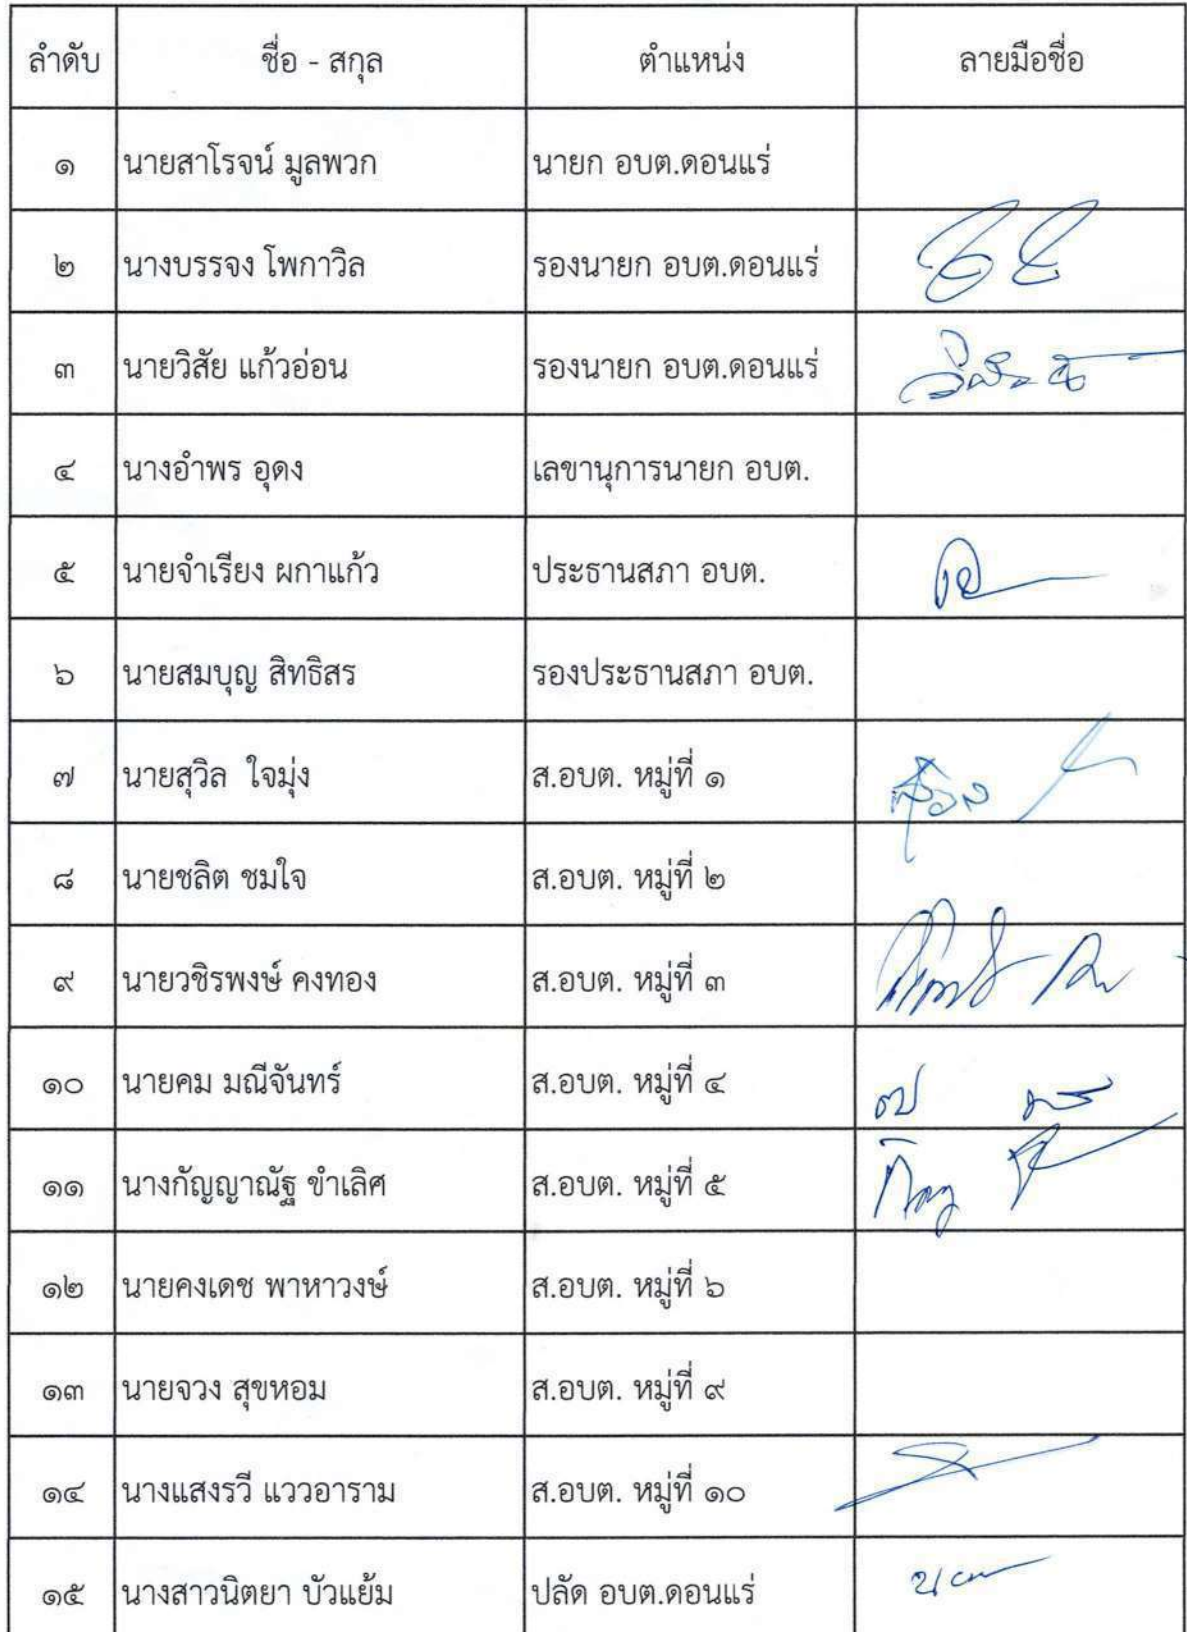 ลำดับ ชื่อ - สกุล ตำแหน่ง ลายมือชื่อ
๑ นายสาโรจน์ มูลพวก นายก อบต.ดอนแร่
๒ นางบรรจง โพกาวิล รองนายก อบต.ดอนแร่
๓ นายวิสัย แก้วอ่อน รองนายก อบต.ดอนแร่
๔ นางอำพร อุดง เลขานุการนายก อบต.
๕ นายจำเรียง ผกาแก้ว ประธานสภา อบต.
๖ นายสมบุญ สิทธิสร รองประธานสภา อบต.
๗ นายสุวิล ใจมุ่ง ส.อบต. หมู่ที่ ๑
๘ นายชลิต ชมใจ ส.อบต. หมู่ที่ ๒
๙ นายวชิรพงษ์ คงทอง ส.อบต. หมู่ที่ ๓
๑๐ นายคม มณีจันทร์ ส.อบต. หมู่ที่ ๔
๑๑ นางกัญญาณัฐ ขำเลิศ ส.อบต. หมู่ที่ ๕
๑๒ นายคงเดช พาหาวงษ์ ส.อบต. หมู่ที่ ๖
๑๓ นายจวง สุขหอม ส.อบต. หมู่ที่ ๙
๑๔ นางแสงรวี แววอาราม ส.อบต. หมู่ที่ ๑๐
๑๕ นางสาวนิตยา บัวแย้ม ปลัด อบต.ดอนแร่